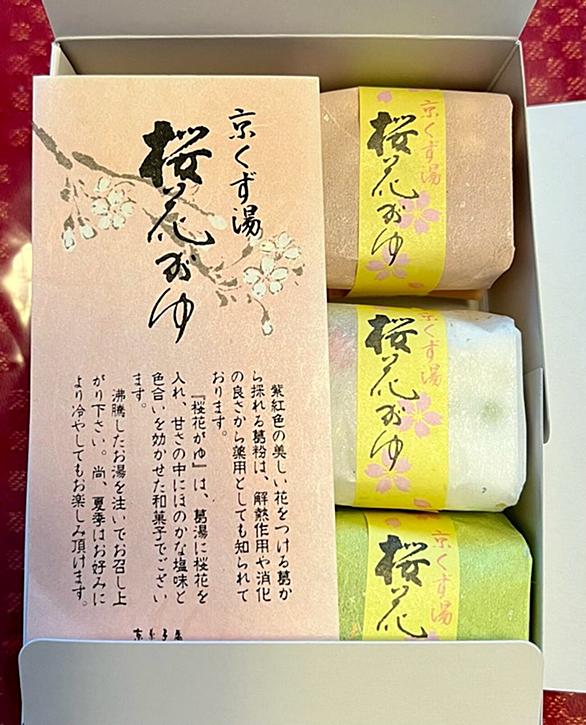 京くず湯
桜花がゆ
紫紅色の美しい花をつける葛か
ら採れる葛粉は、解熱作用や消化
の良さから薬用としても知られて
おります。
『桜花がゆ』は、葛湯に桜花を
入れ、甘さの中にほのかな塩味と
色合いを効かせた和菓子でござい
ます。
沸騰したお湯を注いでお召し上
がり下さい。尚、夏季はお好みに
より冷やしてもお楽しみ頂けます。
京くず湯
桜花がゆ
京くず湯
桜花がゆ
京くず湯
桜花